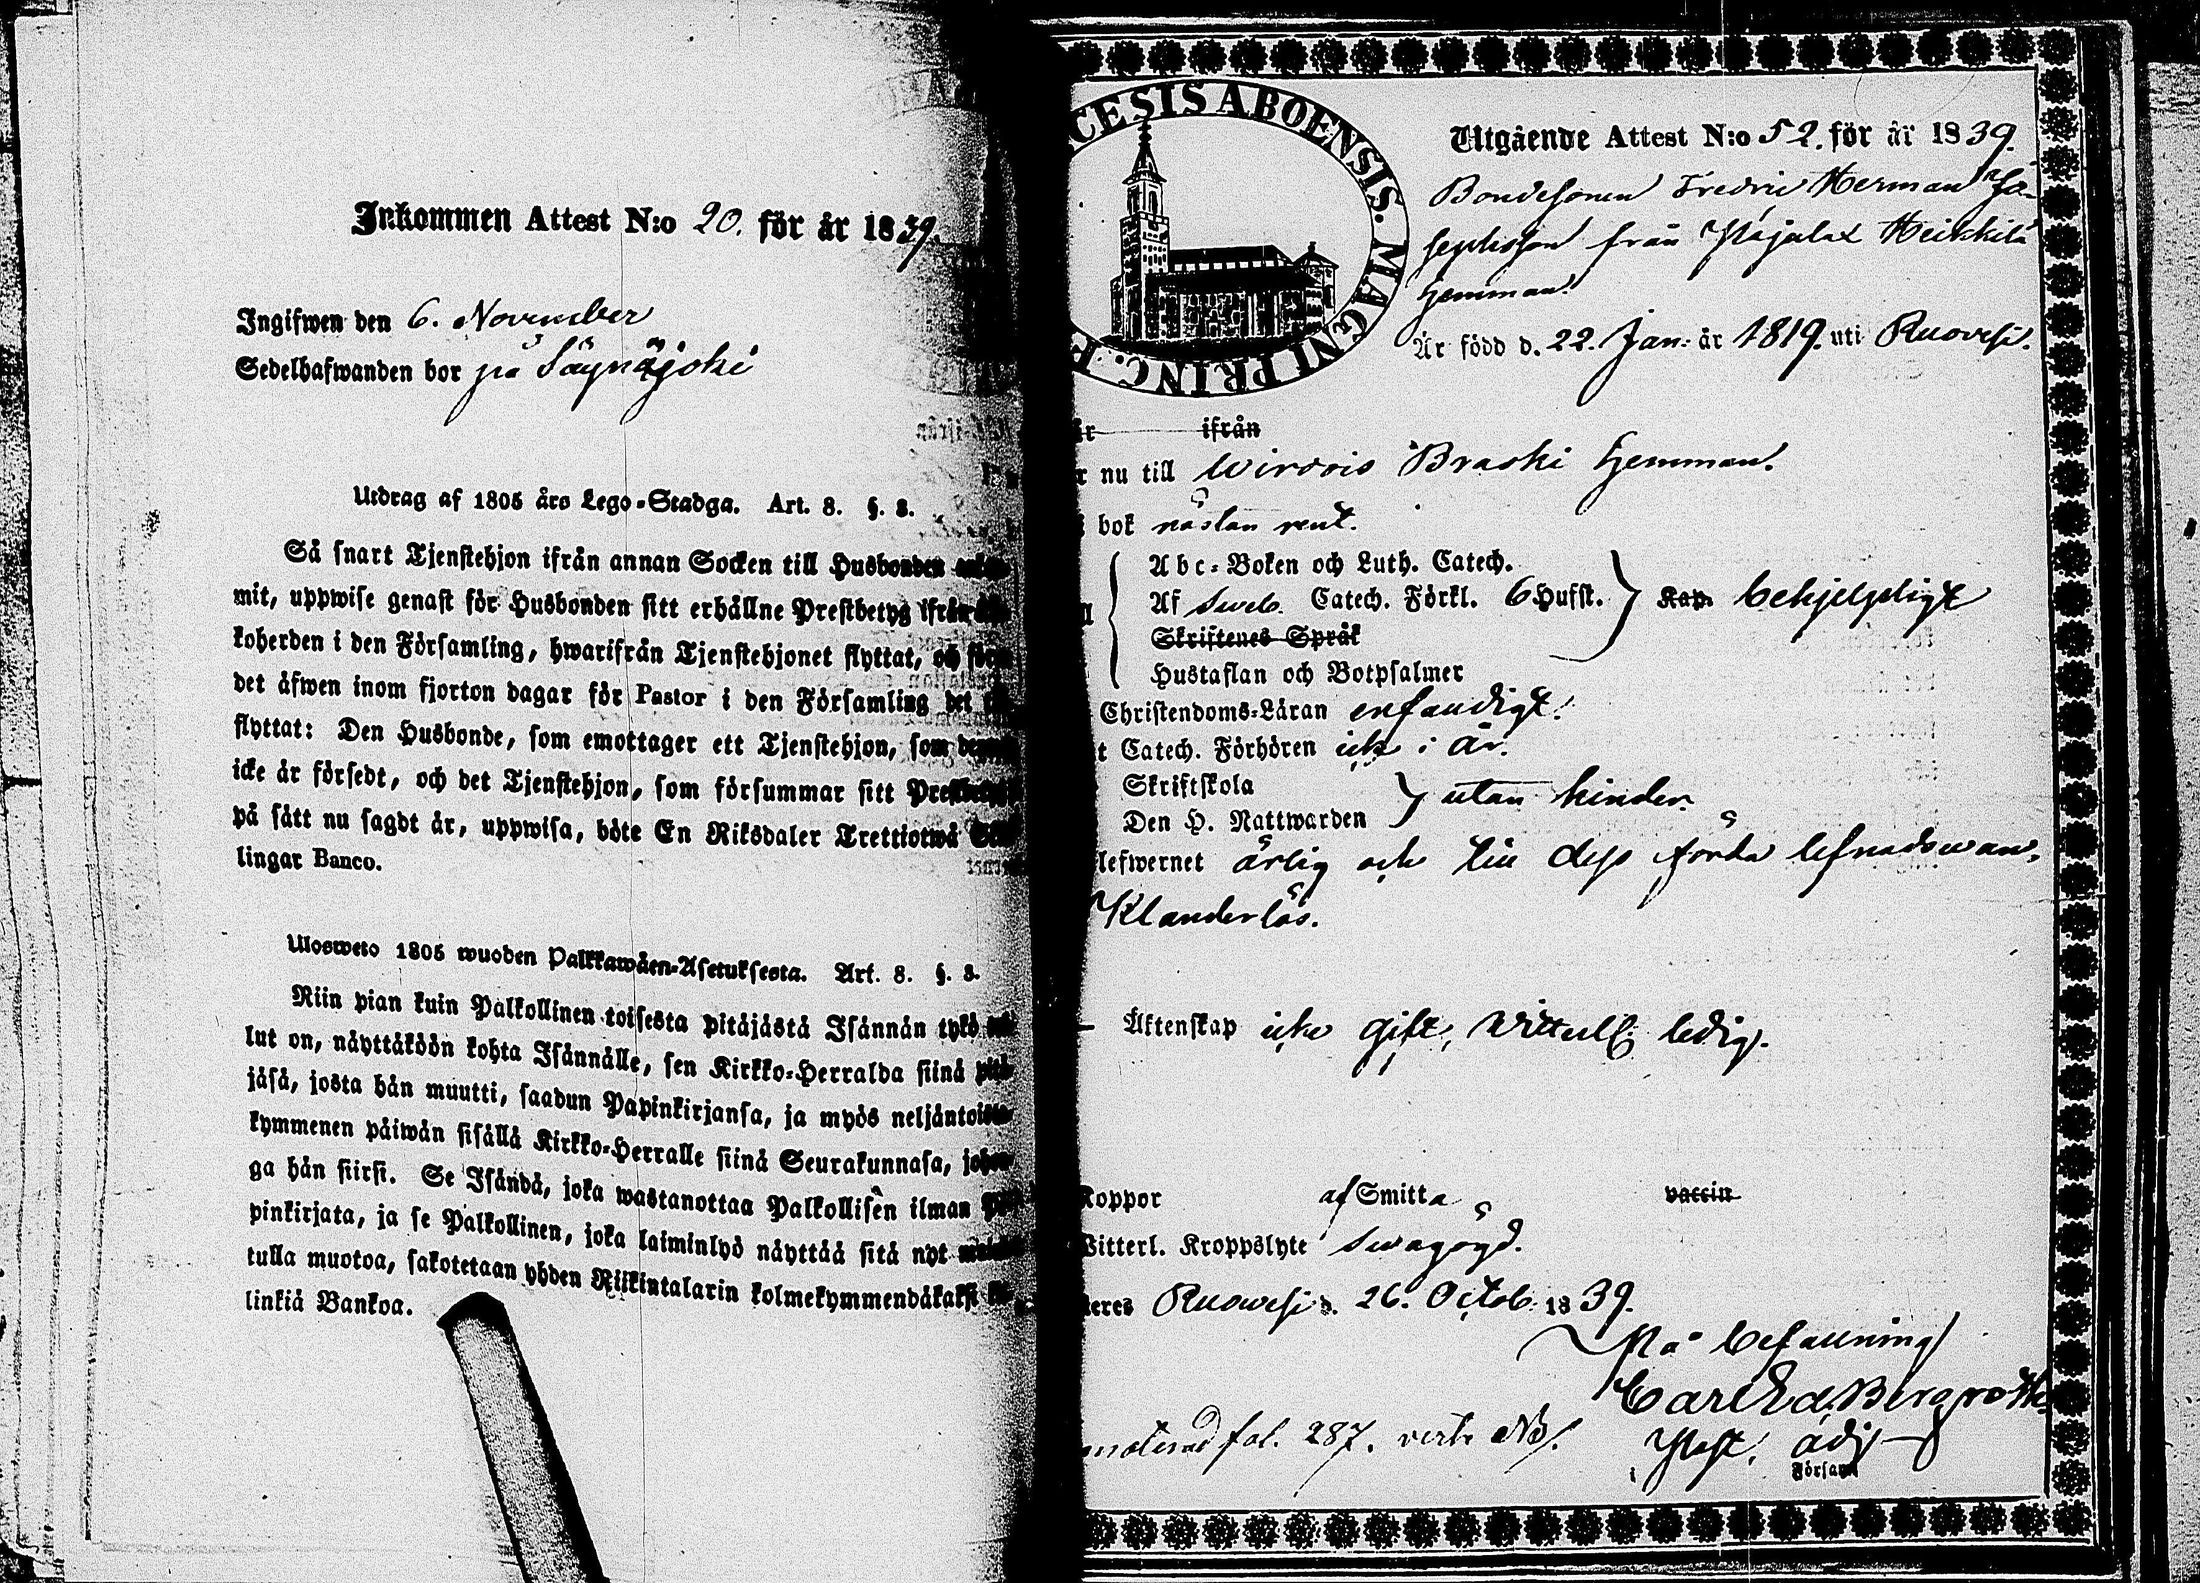 Inkommen Attest N:o 20. för år 1839.
Ingifwen den 6. November
Sedelhafwanden bor på Säynäjoki
Utdrag af 1805 års Lego-Stadga. Art. 8. §. 8.
Så snart Tjenstehjon ifrån annan Socken till Husbonden
mit, uppwise genast för Husbonden sitt erhållne Prestbetyg ifrån
koherden i den Församling, hwarifrån Tjenstehjonet flyttat, och
det äfwen inom fjorton dagar för Pastor i den Församling det
flyttat: Den Husbonde, som emottager ett Tjenstehjon, som
icke är försedt, och det Tjenstehjon, som försummar sitt
på sätt nu sagdt är, uppwisa, böte En Riksdaler Trettiotwå
lingar Banco.
Ulosweto 1805 wuoden Palkkawäen-Asetuksesta. Art. 8. §. 8.
Niin pian kuin Palkollinen toisesta pitäjästä Isännän tykö
lut on, näyttäköön kohta Isännälle, sen Kirkko-Herralda siinä
jäsä, josta hän muutti, saadun Papinkirjansa, ja myös neljäntoista
kymmenen päiwän sisällä Kirkko-Herralle siinä Seurakunnasa,
ga hän siirsi. Se Isändä, joka wastanottaa Palkollisen ilman
pinkirjata, ja se Palkollinen, joka laiminlyö näyttää sitä nyt
tulla muotoa, sakotetaan yhden Riikintalarin kolmekymmendäkaksi
linkiä Bankoa.
CESIS ABOENSIS. MAGNI PRINC. F
Utgående Attest N:o 52. för år 1839.
Bondesonen Fredric Herman Jo-
sephsson från Pajulax Heikkilä
hemman.
Är född d. 22. Jan. år 1819. uti Ruovesi.
är ifrån
nu till Wirdois Braski hemman.
bok nästan rent.
Abc-Boken och Luth. Catech.
Af Sweb. Catech. Förkl. 6 Hufst. Kap. behjelpligt
Skriftenes Språk
Hustaflan och Botpsalmer
Christendoms-Läran enfaudigt.
Catech. Förhören icke i år.
Skriftskola
utan hinder.
Den H. Nattwarden
lefwernet ärlig och till dess förda lefnadswan-
Klanderlös.
Äktenskap icke gift, witterl. ledig.
Koppor af Smitta vaccin
Witterl. Kroppslyte swagögd.
Ruowesi d. 26. Octob. 1839.
På befallning
Carl Ed. Bergroth
fol. 287. NB.
Past. adj.
Församl